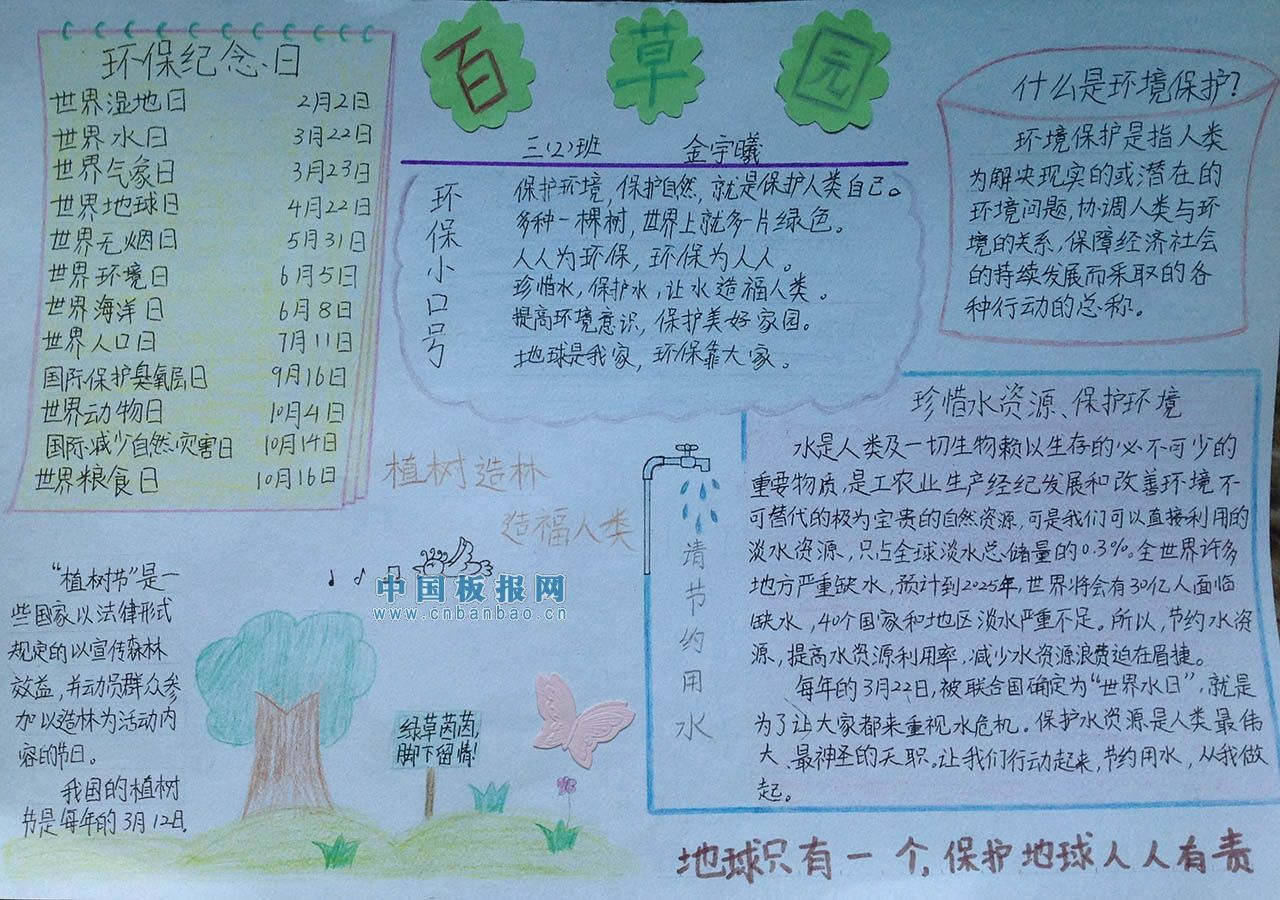 环保纪念日
世界湿地日 2月2日
世界水日 3月22日
世界气象日 3月23日
世界地球日 4月22日
世界无烟日 5月31日
世界环境日 6月5日
世界海洋日 6月8日
世界人口日 7月11日
国际保护臭氧层日 9月16日
世界动物日 10月4日
国际减少自然灾害日 10月14日
世界粮食日 10月16日
百草园
三(2)班 金宇曦
环保小口号
保护环境,保护自然,就是保护人类自己。
多种一棵树,世界上就多一片绿色。
人人为环保,环保为人人。
珍惜水,保护水,让水造福人类。
提高环境意识,保护美好家园。
地球是我家,环保靠大家。
什么是环境保护?
环境保护是指人类
为解决现实的或潜在的
环境问题,协调人类与环
境的关系,保障经济社会
的持续发展而采取的各
种行动的总称。
植树造林
造福人类
中国板报网
www.cnbanbao.cn
“植树节”是一
些国家以法律形式
规定的以宣传森林
效益,并动员群众参
加以造林为活动内
容的节日。
我国的植树
节是每年的3月12日.
绿草茵茵,
脚下留情!
请节约用水
珍惜水资源、保护环境
水是人类及一切生物赖以生存的必不可少的
重要物质,是工农业生产经纪发展和改善环境不
可替代的极为宝贵的自然资源,可是我们可以直接利用的
淡水资源,只占全球淡水总储量的0.3%。全世界许多
地方严重缺水,预计到2025年,世界将会有30亿人面临
缺水,40个国家和地区淡水严重不足。所以,节约水资
源,提高水资源利用率,减少水资源浪费迫在眉捷。
每年的3月22日,被联合国确定为“世界水日”,就是
为了让大家都来重视水危机。保护水资源是人类最伟
大、最神圣的天职。让我们行动起来,节约用水,从我做
起。
地球只有一个,保护地球人人有责